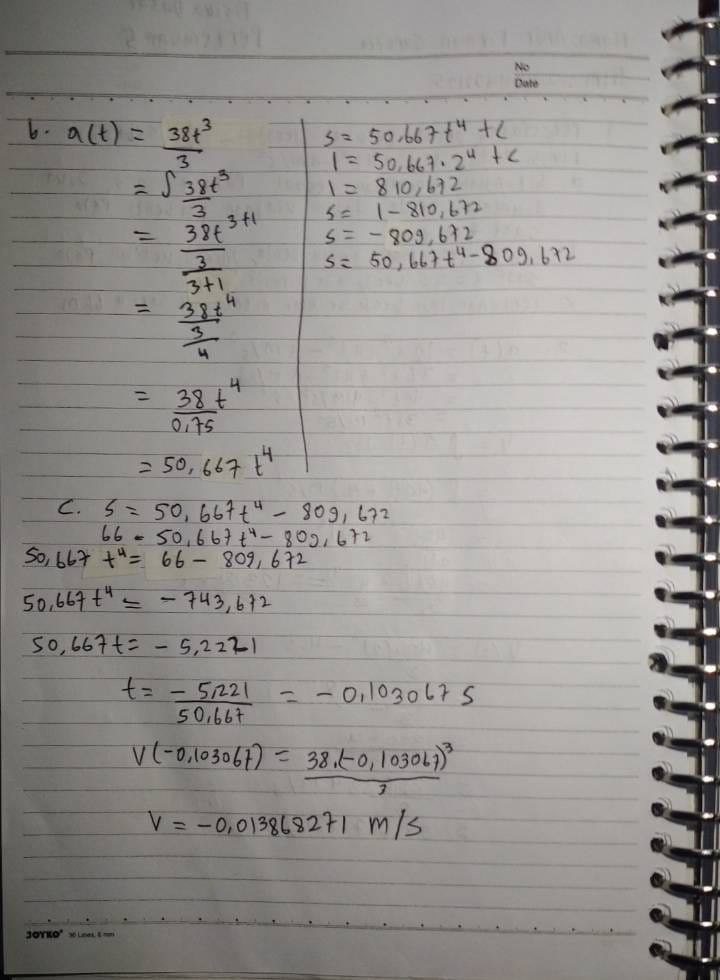 No
Date
b. a(t) = 38t³/3
= ∫ 38t³/3
= 38t³⁺¹/3/3+1
= 38t⁴/3/4
= 38t⁴/0,75
= 50,667 t⁴
s = 50.667t⁴ + c
1 = 50,667.2⁴ + c
1 = 810,672
s = 1 - 810,672
s = - 809,672
s = 50,667t⁴ - 809,672
c. s = 50,667t⁴ - 809,672
66 = 50,667t⁴ - 809,672
50,667 t⁴ = 66 - 809,672
50,667t⁴ = - 743,672
50,667t = - 5,2221
t = - 5,221/50,667 = - 0,103067 s
V(-0,103067) = 38.(-0,103067)³/3
V = -0,013868271 m/s
JOYKO 30 Lines, 8 mm